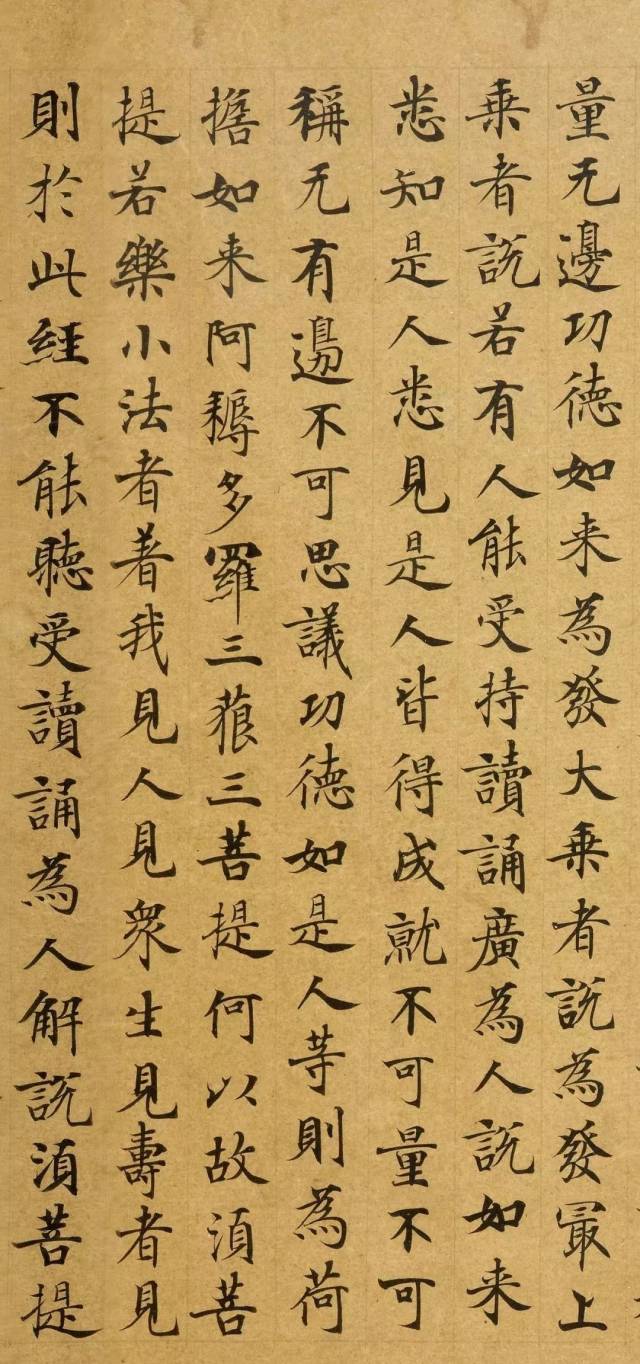 量无邊功徳如来為發大乗者說為發冣上
乗者說若有人能受持讀誦廣為人說如来
悉知是人悉見是人皆得成就不可量不可
稱无有邊不可思議功徳如是人等則為荷
擔如来阿耨多羅三藐三菩提何以故湏菩
提若樂小法者著我見人見衆生見壽者見
則於此經不能聽受讀誦為人解說湏菩提